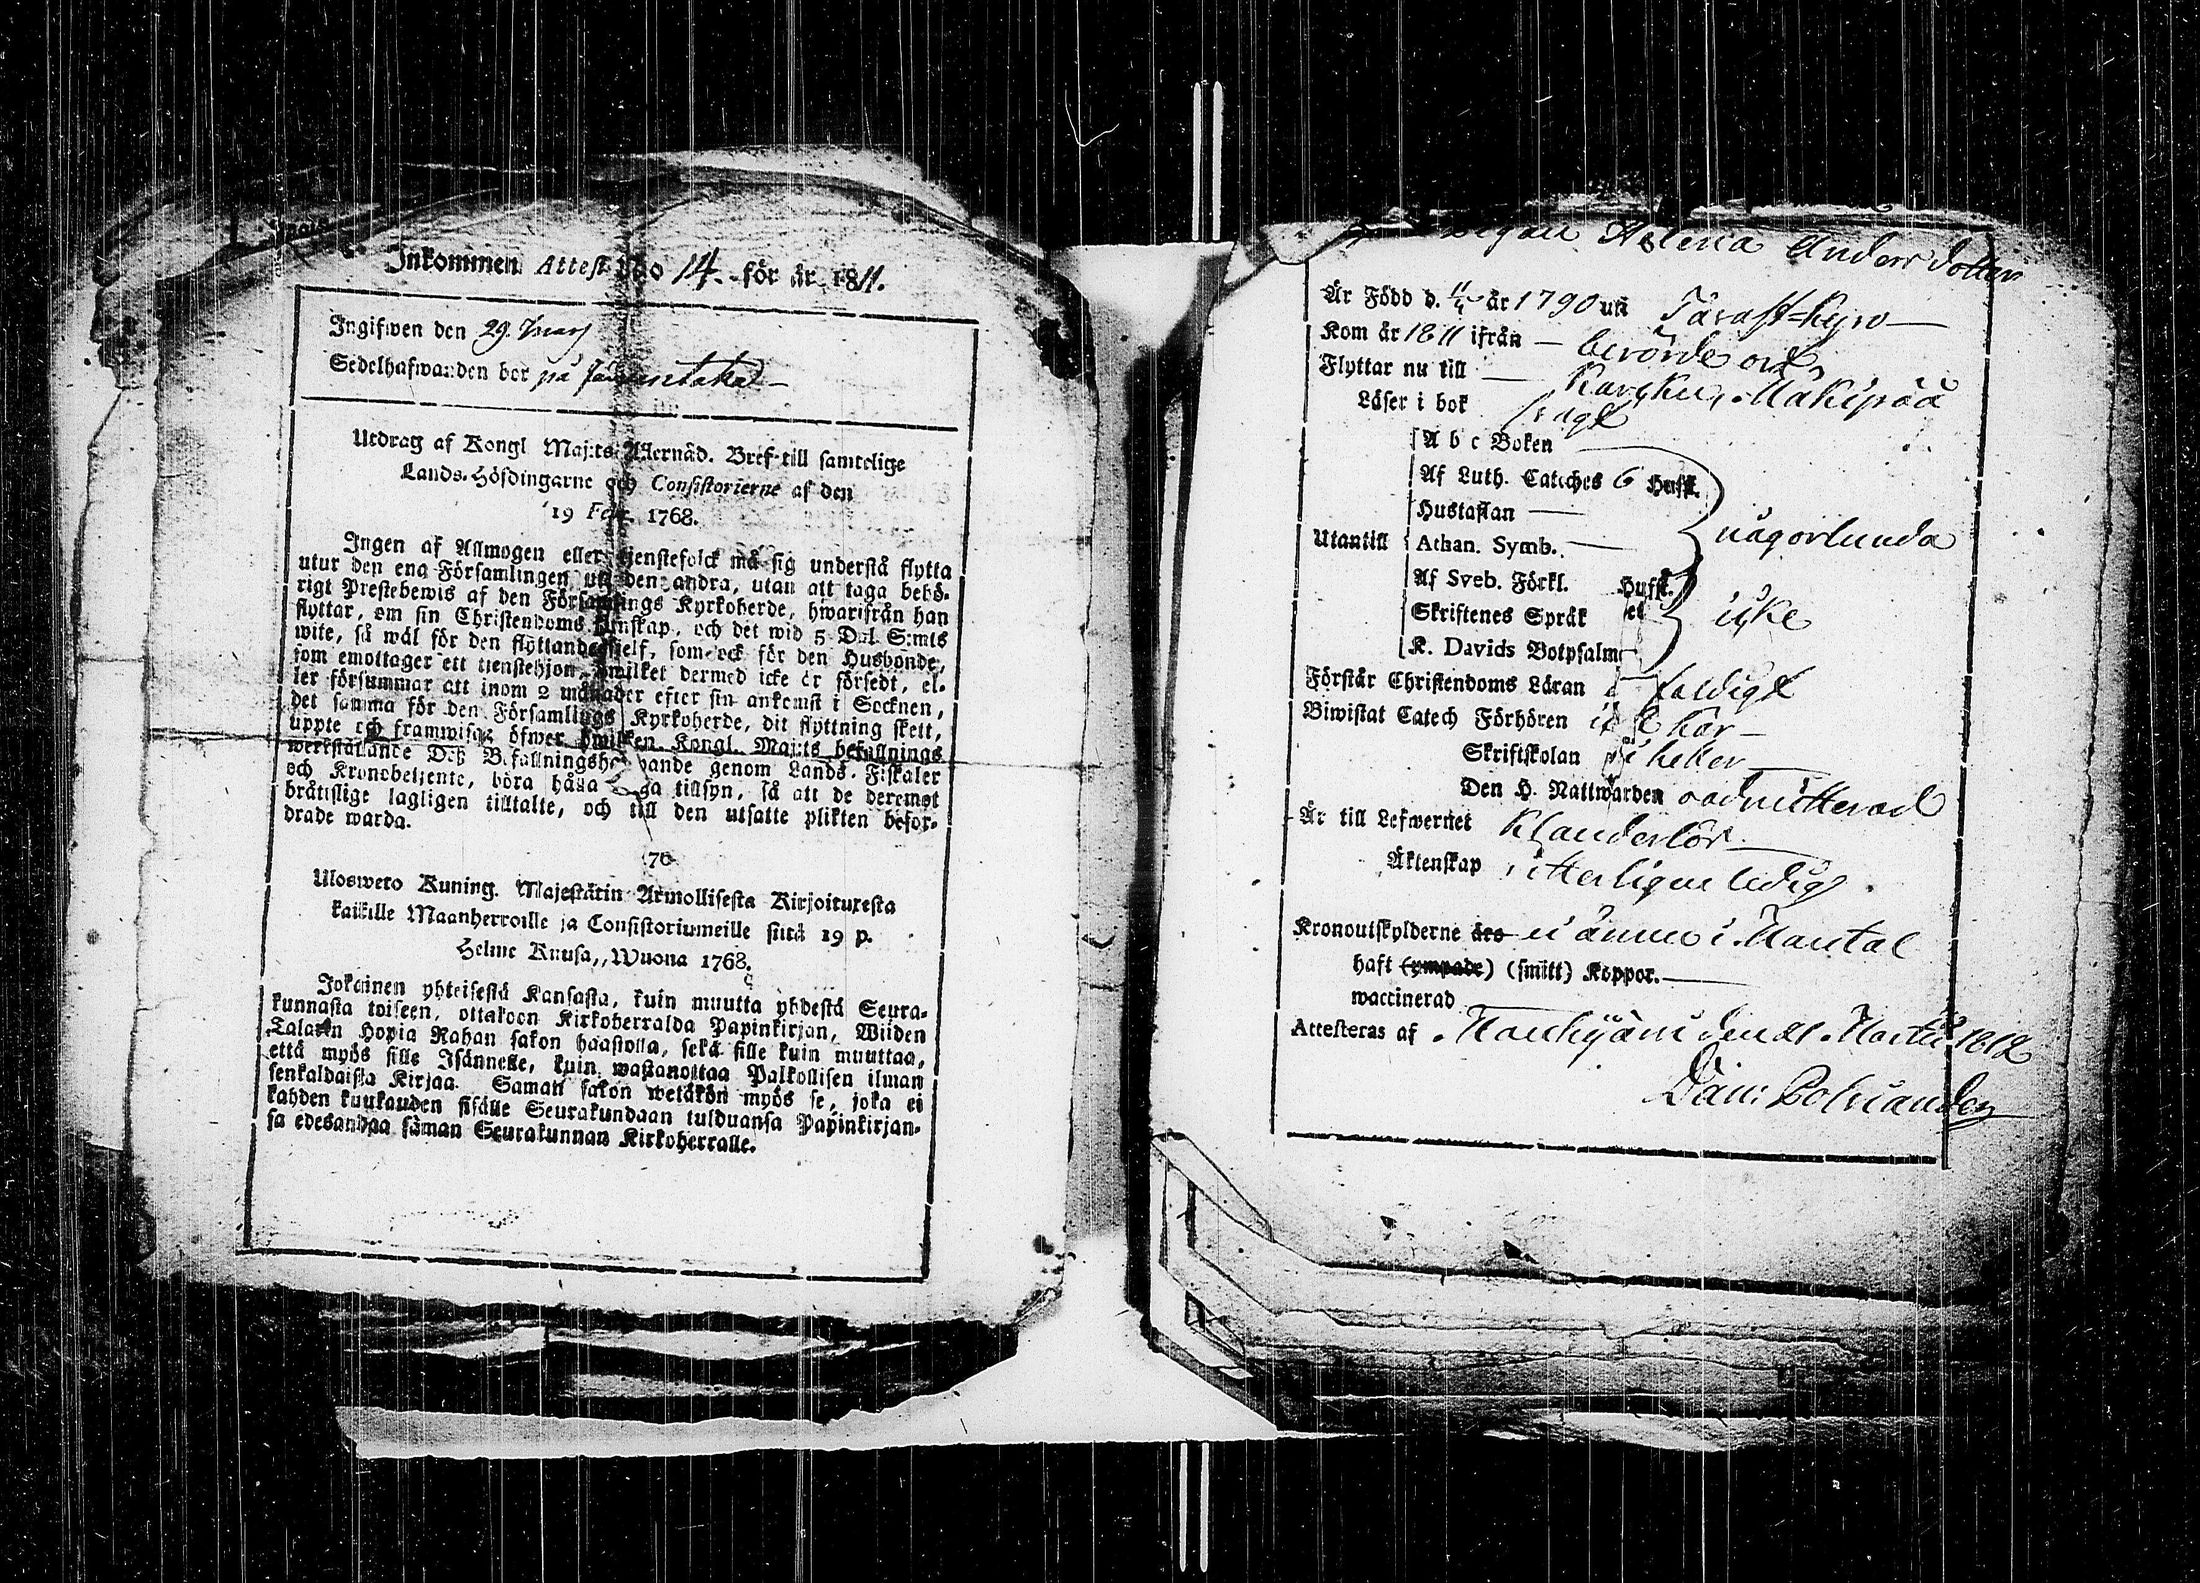 Inkommen Attest No 14. för år 1811.
Ingifwen den 29.
Sedelhafwanden bor på
Utdrag af Kongl Maj:ts Allernåd. Bref till samtelige
Lands-Höfdingarne och Consistorierne af den
19 Febr. 1768.
Ingen af Allmogen eller tjenstefolck må sig understå flytta
utur den ena Församlingen uti den andra, utan att taga behö-
rigt Prestebewis af den Församlings Kyrkoherde, hwarifrån han
flyttar, om sin Christendoms kunskap, och det wid 5 Dal. S:mts
wite, så wäl för den flyttande sielf, som ock för den Husbonde,
som emottager ett tienstehjon hwilket dermed icke är försedt, el-
ler försummar att inom 2 månader efter sin ankomst i Socknen,
det samma för den Församlings Kyrkoherde, dit flyttning skett,
uppte och framwisa; öfwer hwilken Kongl. Maj:ts befallnings
werkställande Deß Befallningshafwande genom Lands-Fiskaler
och Kronobetjente, böra hålla noga tillsyn, så att de deremot
brätislige lagligen tilltalte, och till den utsatte plikten befor-
drade warda.
Uloswero Kuning. Majestätin Armollisesta Kirjoituxesta
kaikille Maanherroille ja Consistoriumeille siitä 19 p.
Helme Kuusa,, Wuona 1768.
Jokainen yhteisestä Kansasta, kuin muutta yhdestä Seura-
kunnasta toiseen, ottakoon Kirkoherralda Papinkirjan, Wiiden
Talarin Hopia Rahan sakon haastolla, sekä sille kuin muuttaa,
että myös sille Isännelle, kuin wastanottaa Palkollisen ilman
senkaldaista Kirjaa. Saman sakon wetäkön myös se, joka ei
kahden kuukauden sisälle Seurakundaan tulduansa Papinkirjan-
sa edesandaa säman Seurakunnan Kirkoherralle.
Pigan Helena Anders dotter
Är Född d. 11/4 år 1790 uti Tavast-kyro
Kom år 1811 ifrån berörde ort,
Flyttar nu till Karcku, Mäkipää
Läser i bok swagt
A b c Boken
Af Luth. Catiches 6 Hufst.
Hustaflan
Utantill Athan. Symb. någorlunda
Af Sveb. Förkl. Hufst.
Skriftenes Språk icke
K. Davids Botpsalm
Förstår Christendoms Läran
Biwistat Catech Förhören här
Skriftskolan heller
Den H. Nattwarden oadmitterad
Är till Lefwernet Klanderlös
Äktenskap ledig.
Kronoutskylderne äro ei ännu i Mantal
haft (ympade) (smitt) Koppor.
waccinerad
Attesteras af den 21 Martii 1812
Dan: Polviander